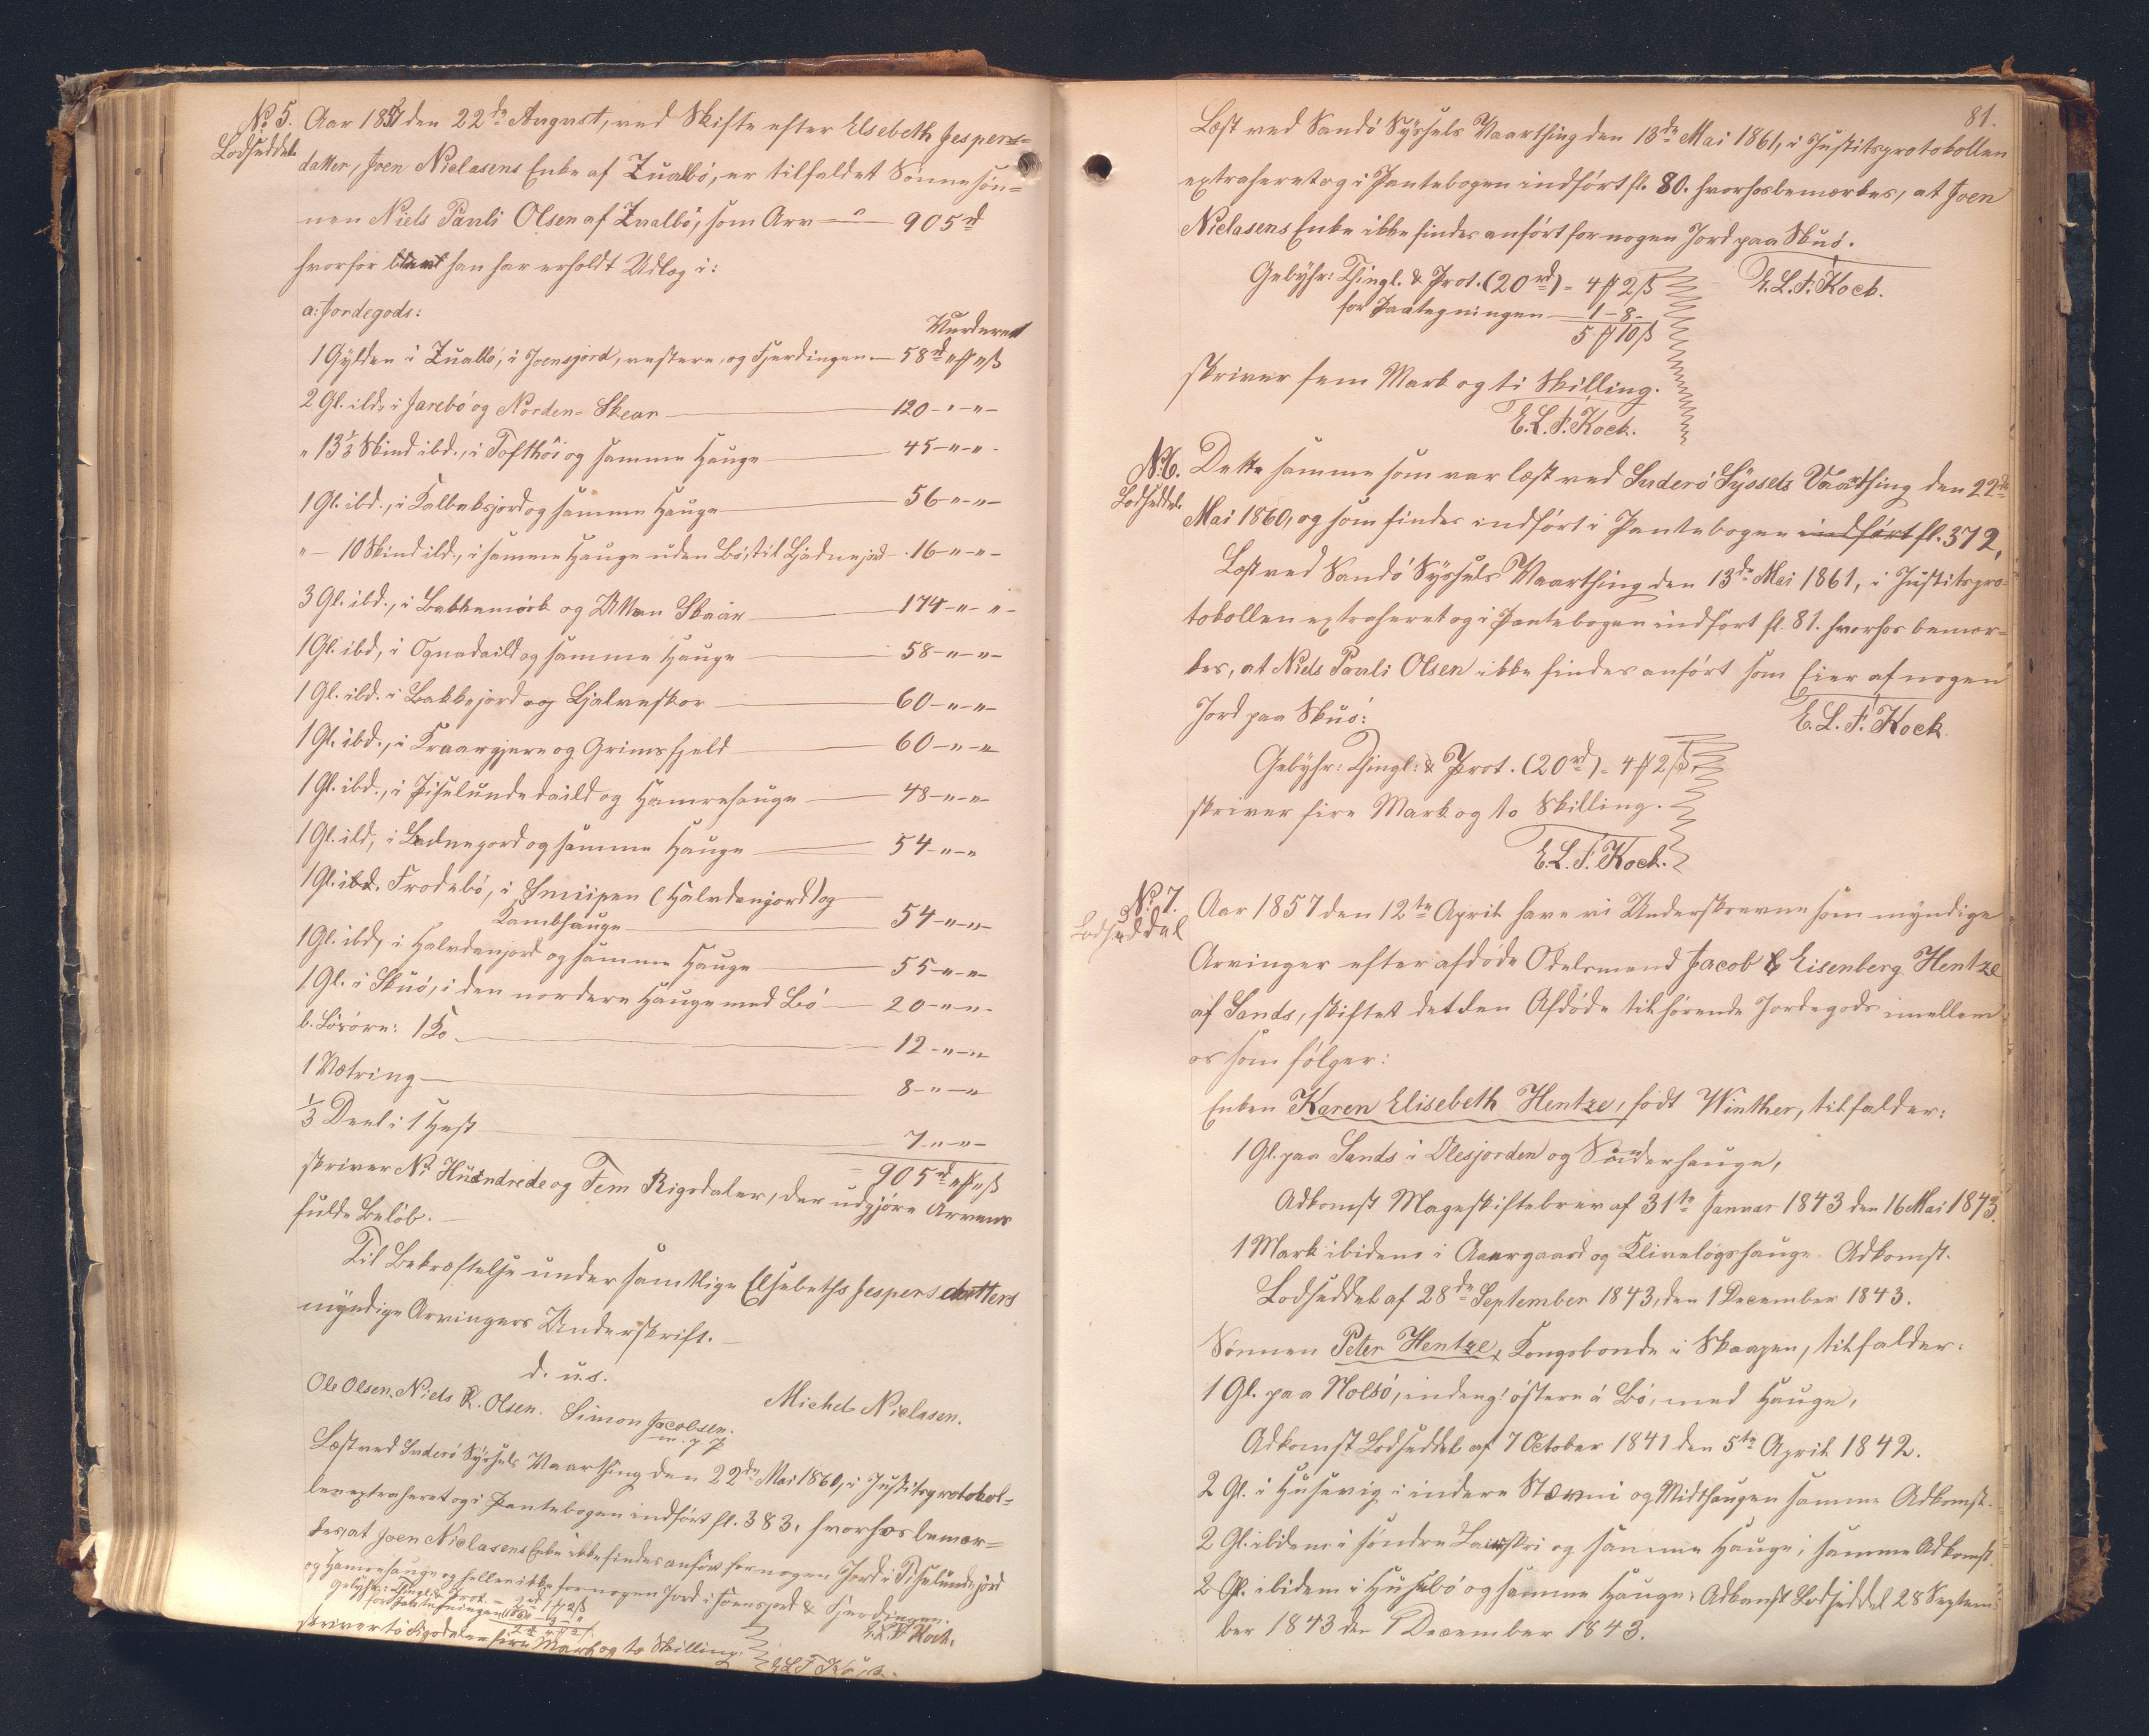 No. 5.
Lodseddel
Aar 1857 den 22de August, ved Skifte efter Elsebeth Jespers=
datter, Joen Nielasens Enke af Zualbö, er tilfaldet Sönnesön=
nen Niels Pauli Olsen af Zualbö, som Arv — 905 rd
hvorfor han har erholdt Udlæg i:
a: Jordegods:
Vurderet
1 Gylden i Zualbö, i Joensjord, vestere, og Fjerdingen — 58 rd " ß " ß
2 Gl. ibd., i Jarebö og Norden-Skear — 120 - " - " -
" 13 1/3 Skind ibd., i Tofthöi og samme Hauge — 45 - " - " -
1 Gl. ibd., i Kalbaksjord og samme Hauge — 56 - " - " -
" - 10 Skind ibd., i samme Hauge uden Bö, til Ljadnejord - 16 - " - " -
3 Gl. ibd., i Bakkemörk og Uttan Skaar — 174 - " - " -
1 Gl. ibd, i Ognadaild og samme Hauge — 58 - " - " -
1 Gl. ibd. i Bakkejord og Gjalveskor — 60 - " - " -
1 Gl. ibd., i Kraargjere og Grimsfjeld — 60 - " - "
1 Gl. ibd., i Piselundedaild og Hamrehauge — 48 - " - "
1 Gl. ibd, i Ladnejord og samme Hauge — 54 - " - "
1 Gl. ibd. Frodebö, i Sniipen (Halvdanjord) og
Lambhauge — 54 - " - "
1 Gl. ibd, i Halvdanjord og samme Hauge — 55 - " - "
1 Gl. i Skuö, i den nordere Hauge med Bö — 20 - " - " -
b. Lösöre: 1 Ko — 12 - " - "
1 Vetring — 8 - " - "
1/3 Deel i 1 Hest — 7 - " - " -
= 905 rd " ß " ß
skriver Ni Hundrede og Fem Rigsdaler, der udgjöre Arvens
fulde Belöb. —
Til Bekræftelse under samtlige Elsebeths Jespersdatters
myndige Arvingers Underskrift. —
d. u. s.
Ole Olsen. Niels P. Olsen. Simon Jacobsen. Michel Nielasen.
m. p. P
Læst ved Suderö Syssels Vaarthing den 22de Mai 1860, i Justitsprotokol=
len extraheret og i Pantebogen indfört fl. 383, hvorhos bemær=
kes, at Joen Nielasens Enke ikke findes anfört for nogen Jord i Piselundejord
og Hamrehauge og hellere ikke for nogen Jord i Joensjord & Fjerdingen.
Gebyhr: Thingl. & Prot. — 2 rd 1 ß 2 ß
for Paategningen
E. L. F. Kock.
skriver to Rigsdaler fire Mark og to Skilling.
E L F Kock.
81.
Læst ved Sandö Syssels Vaarthing den 13de Mai 1861, i Justitsprotokollen
extraheret og i Pantebogen indfört fl. 80. hvorhos bemærkes, at Joen
Nielasens Enke ikke findes anfört for nogen Jord paa Skuö.
E. L. F. Kock.
Gebyhr: Thingl. & Prot. (20 rd) = 4 ß 2 ß
for Paategningen — 1 - 8 -
5 ß 10 ß
skriver fem Mark og ti Skilling.
E. L. F. Kock.
No. 6.
Lodseddel
Dette samme som var læst ved Suderö Syssels Vaarthing den 22de
Mai 1860, og som findes indfört i Pantebogen indfört fl. 372,
Læst ved Sandö Syssels Vaarthing den 13de Mai 1861, i Justitspro-
tokollen extraheret og i Pantebogen indfört fl. 81. hvorhos bemær=
kes, at Niels Pauli Olsen ikke findes anfört som Eier af nogen
Jord paa Skuö:
E. L. F. Kock
Gebyhr: Thingl: & Prot. (20 rd) = 4 ß 2 ß.
skriver fire Mark og to Skilling.
E. L. F. Kock.
No. 7.
Lodseddel
Aar 1857 den 12te April have vi Underskrevne som myndige
Arvinger efter afdöde Odelsmand Jacob Eisenberg Hentze
af Sands, skiftet det den Afdöde tilhörende Jordegods imellem
os som fölger:
Enken Karen Elisebeth Hentze, födt Winther, tilfalder:
1 Gl. paa Sands i Olesjorden og Sönderhauge,
Adkomst Mageskiftebrev af 31te Januar 1843 den 16 Mai 1843.
1 Mark ibidem i Aaargaard og Klivelögshauge. Adkomst.
Lodseddel af 28de September 1843, den 1 December 1843.
Sönnen Peter Hentze, Kongsbonde i Skaapen, tilfalder:
1 Gl. paa Nolsö, indeng! östere á Bö, med Hauge,
Adkomst Lodseddel af 7 October 1841 den 5te April 1842.
2 Gl. i Husevig i indere Stævni og Midthaugen samme Adkomst.
2 Gl. ibidem i söndre og samme Hauge, samme Adkomst.
2 Gl. ibidem i Husebö og samme Hauge, Adkomst Lodseddel 28 Septem-
ber 1843 den 1 December 1843.